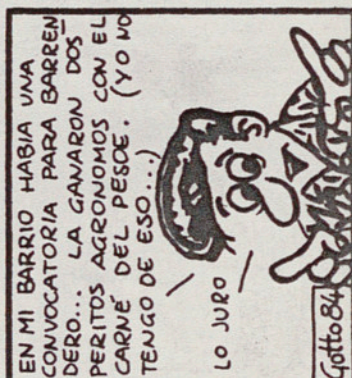 EN MI BARRIO HABIA UNA
CONVOCATORIA PARA BARREN
DERO... LA GANARON DOS
PERITOS AGRONOMOS CON EL
CARNÉ DEL PESOE. (YO NO
TENGO DE ESO...)
LO JURO
Gotto 84